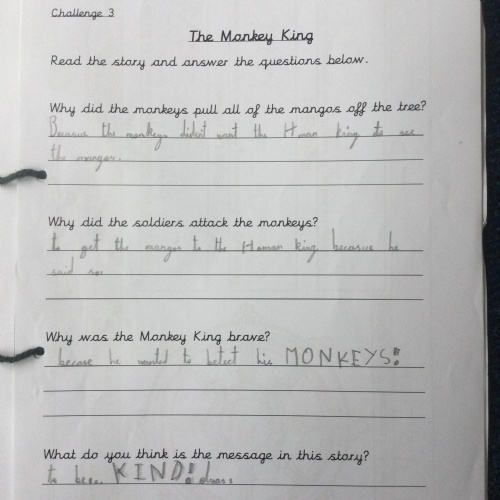 Challenge 3
The Monkey King
Read the story and answer the questions below.
Why did the monkeys pull all of the mangos off the tree?
Because the monkeys dident want the Hman king to see
the mangos.
Why did the soldiers attack the monkeys?
to get the mangos to the Haman king becasue he
said so.
Why was the Monkey King brave?
becase he wanted to betect his MONKEYS!
What do you think is the message in this story?
to be KIND!